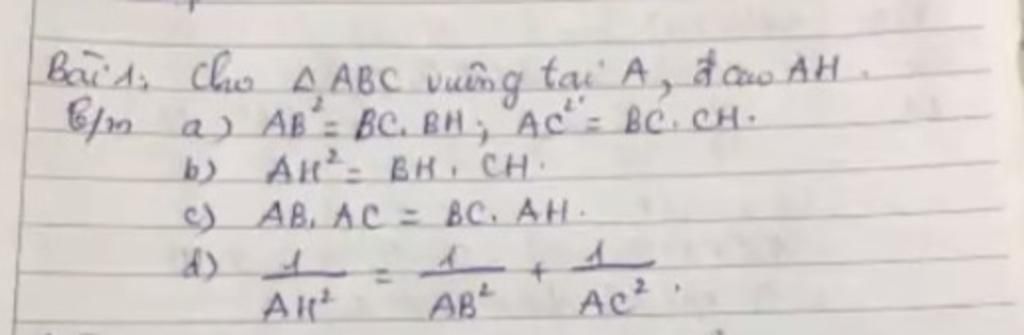 Bài 1: Cho Δ ABC vuông tại A, đ cao AH.
C/m a) AB² = BC. BH; AC² = BC. CH.
b) AH² = BH. CH.
c) AB. AC = BC. AH.
d) 1/AH² = 1/AB² + 1/AC².